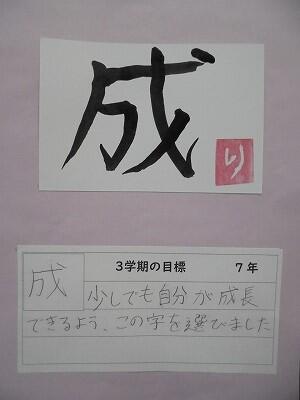 成
り
3学期の目標 7年
成
少しでも自分が成長
できるよう、この字を選びました